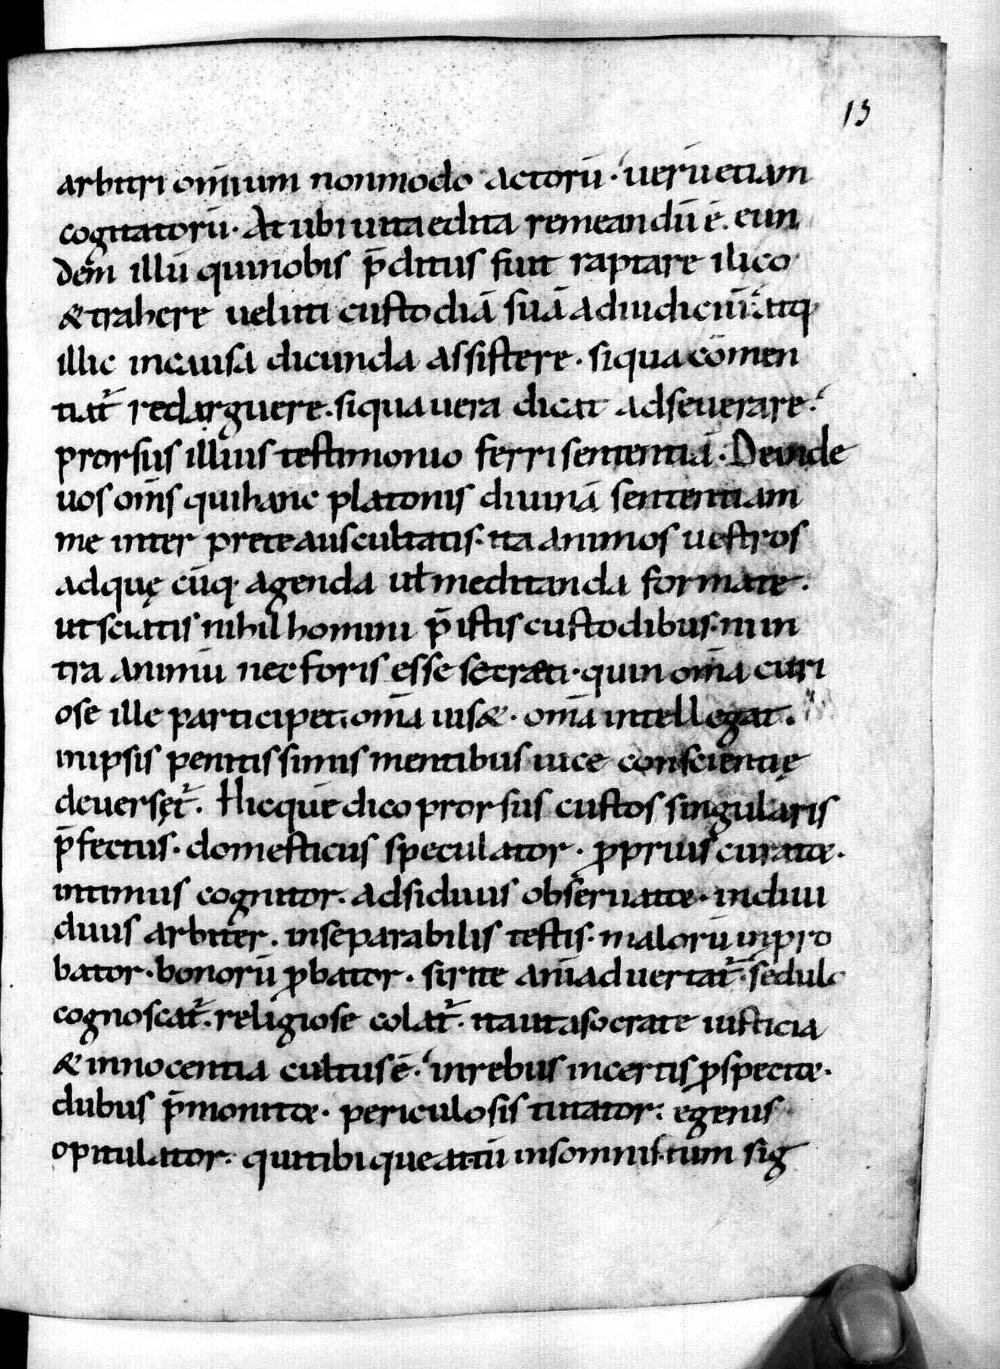 13
arbitri om̄ium nonmodo actorū· uerūetiam
cogitatorū· At ubi uitaedita remeandū ē. eun
dem̄ illū quinobis p̄ditus fuit raptare ilico
&trahere ueluti custodiā suā adiudiciū· atq;
illic incausa dicunda assistere· siqua com̄en
tiat᷑ redarguere· siqua uera dicat adseuerare·
prorsus illius testimonio ferri sententiā· Deinde
uos om̄s quihanc platonis diuinā sententiam
me inter prete auscultatis· ita animos uestros
adquę cūq· agenda ul̄ meditanda formate·
ut sciatis nihil homini p̄ istis custodibus· nin
tra animū nec foris esse secræti· quin om̄a curi
ose ille participet· om̄a uis&· om̄a intellegat·
inipsis penitissimis mentibus uice conscientię
deuersęt᷑· Hicque dico prorsus custos singularis
p̄fectus· domesticus speculator· ꝓprius curatoe·
intimus cognitor· adsiduus obseruatoe· indiui
duus arbiter· inseparabilis testis· malorū inpro
bator· bonorū ꝓbator· sirite anim̄aduertat᷑· sedulo
cognoscat᷑· religiose colat᷑· itautasocrate iusticia
&innocentia cultus ē· inrebus incertis ꝓspectoe·
dubus p̄monitoe· periculosis tutator· egenis
opitulator· quitibi queattū insomnis· tum sig